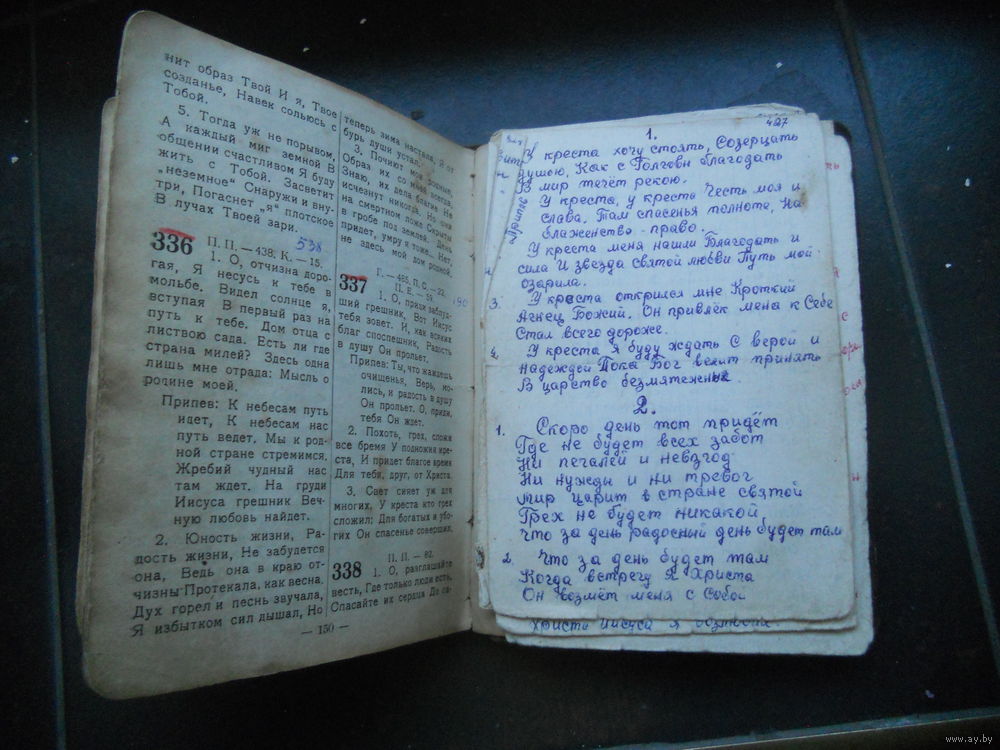 нит образ Твой И я, Твое
созданье, Навек сольюсь с
Тобой.
5. Тогда уж не порывом,
А каждый миг земной В
общении счастливом Я буду
жить с Тобой. Засветит
„неземное“ Снаружи и вну-
три, Погаснет „я“ плотское
В лучах Твоей зари.
336
П. П.—438. К.—15.
538
1. О, отчизна доро-
гая, Я несусь к тебе в
мольбе. Видел солнце я,
вступая В первый раз на
путь к тебе. Дом отца с
листвою сада. Есть ли где
страна милей? Здесь одна
лишь мне отрада: Мысль о
родине моей.
Припев: К небесам путь
идет, К небесам нас
путь ведет. Мы к род-
ной стране стремимся.
Жребий чудный нас
там ждет. На груди
Иисуса грешник Веч-
ную любовь найдет.
2. Юность жизни, Ра-
дость жизни, Не забудется
она, Ведь она в краю от-
чизны Протекала, как весна.
Дух горел и песнь звучала,
Я избытком сил дышал, Но
— 150 —
теперь зима настала, Я от
бурь души устал.
3. Почиют мои родные,
Образ их со мной
Знаю, их дела благие Не
исчезнут никогда. Но они
на смертном ложе Скрыты
в гробе под землей. День
придет, умру я тоже... Нет,
не здесь мой дом родной.
337
Г.—465. П. С.—22.
П. Е.—59.
190
1. О, приди заблуд-
ший грешник, Вот Иисус
тебя зовет. И, как всяких
благ споспешник, Радость
в душу Он прольет.
Припев: Ты, что жаждешь
очищенья, Верь, мо-
лись, и радость в душу
Он прольет. О, приди,
тебя Он ждет.
2. Похоть, грех, сложи
все бремя У подножия кре-
ста, И придет благое время
Для тебя, друг, от Христа.
3. Свет сияет уж для
многих, У креста кто грех
сложил: Для богатых и убо-
гих Он спасенье совершил.
338
П. П.—82.
1. О, разглашайте
весть, Где только люди есть,
Спасайте их сердца До са-
427
1.
У креста хочу стоять, Созерцать
душою, Как с Голгофы благодать
В мир течёт рекою.
Припев
У креста, у креста Честь моя и
слава. Там спасенья полнота, На
блаженство право.
У креста меня нашли Благодать и
сила И звезда святой любви Путь мой
озарила.
3. У креста открылся мне Кроткий
Агнец Божий. Он привлёк меня к Себе
Стал всего дороже.
4. У креста я буду ждать С верой и
надеждой Пока Бог велит принять
В царство безмятежные.
2.
1. Скоро день тот придёт
Где не будет всех забот
Ни печалей и невзгод
Ни нужды и ни тревог
Мир царит в стране святой
Грех не будет никакой
Что за день радосный день будет там
2. Что за день будет там
Когда встречу Я Христа
Он возмёт меня с Собой
Христа Иисуса я
www.ay.by